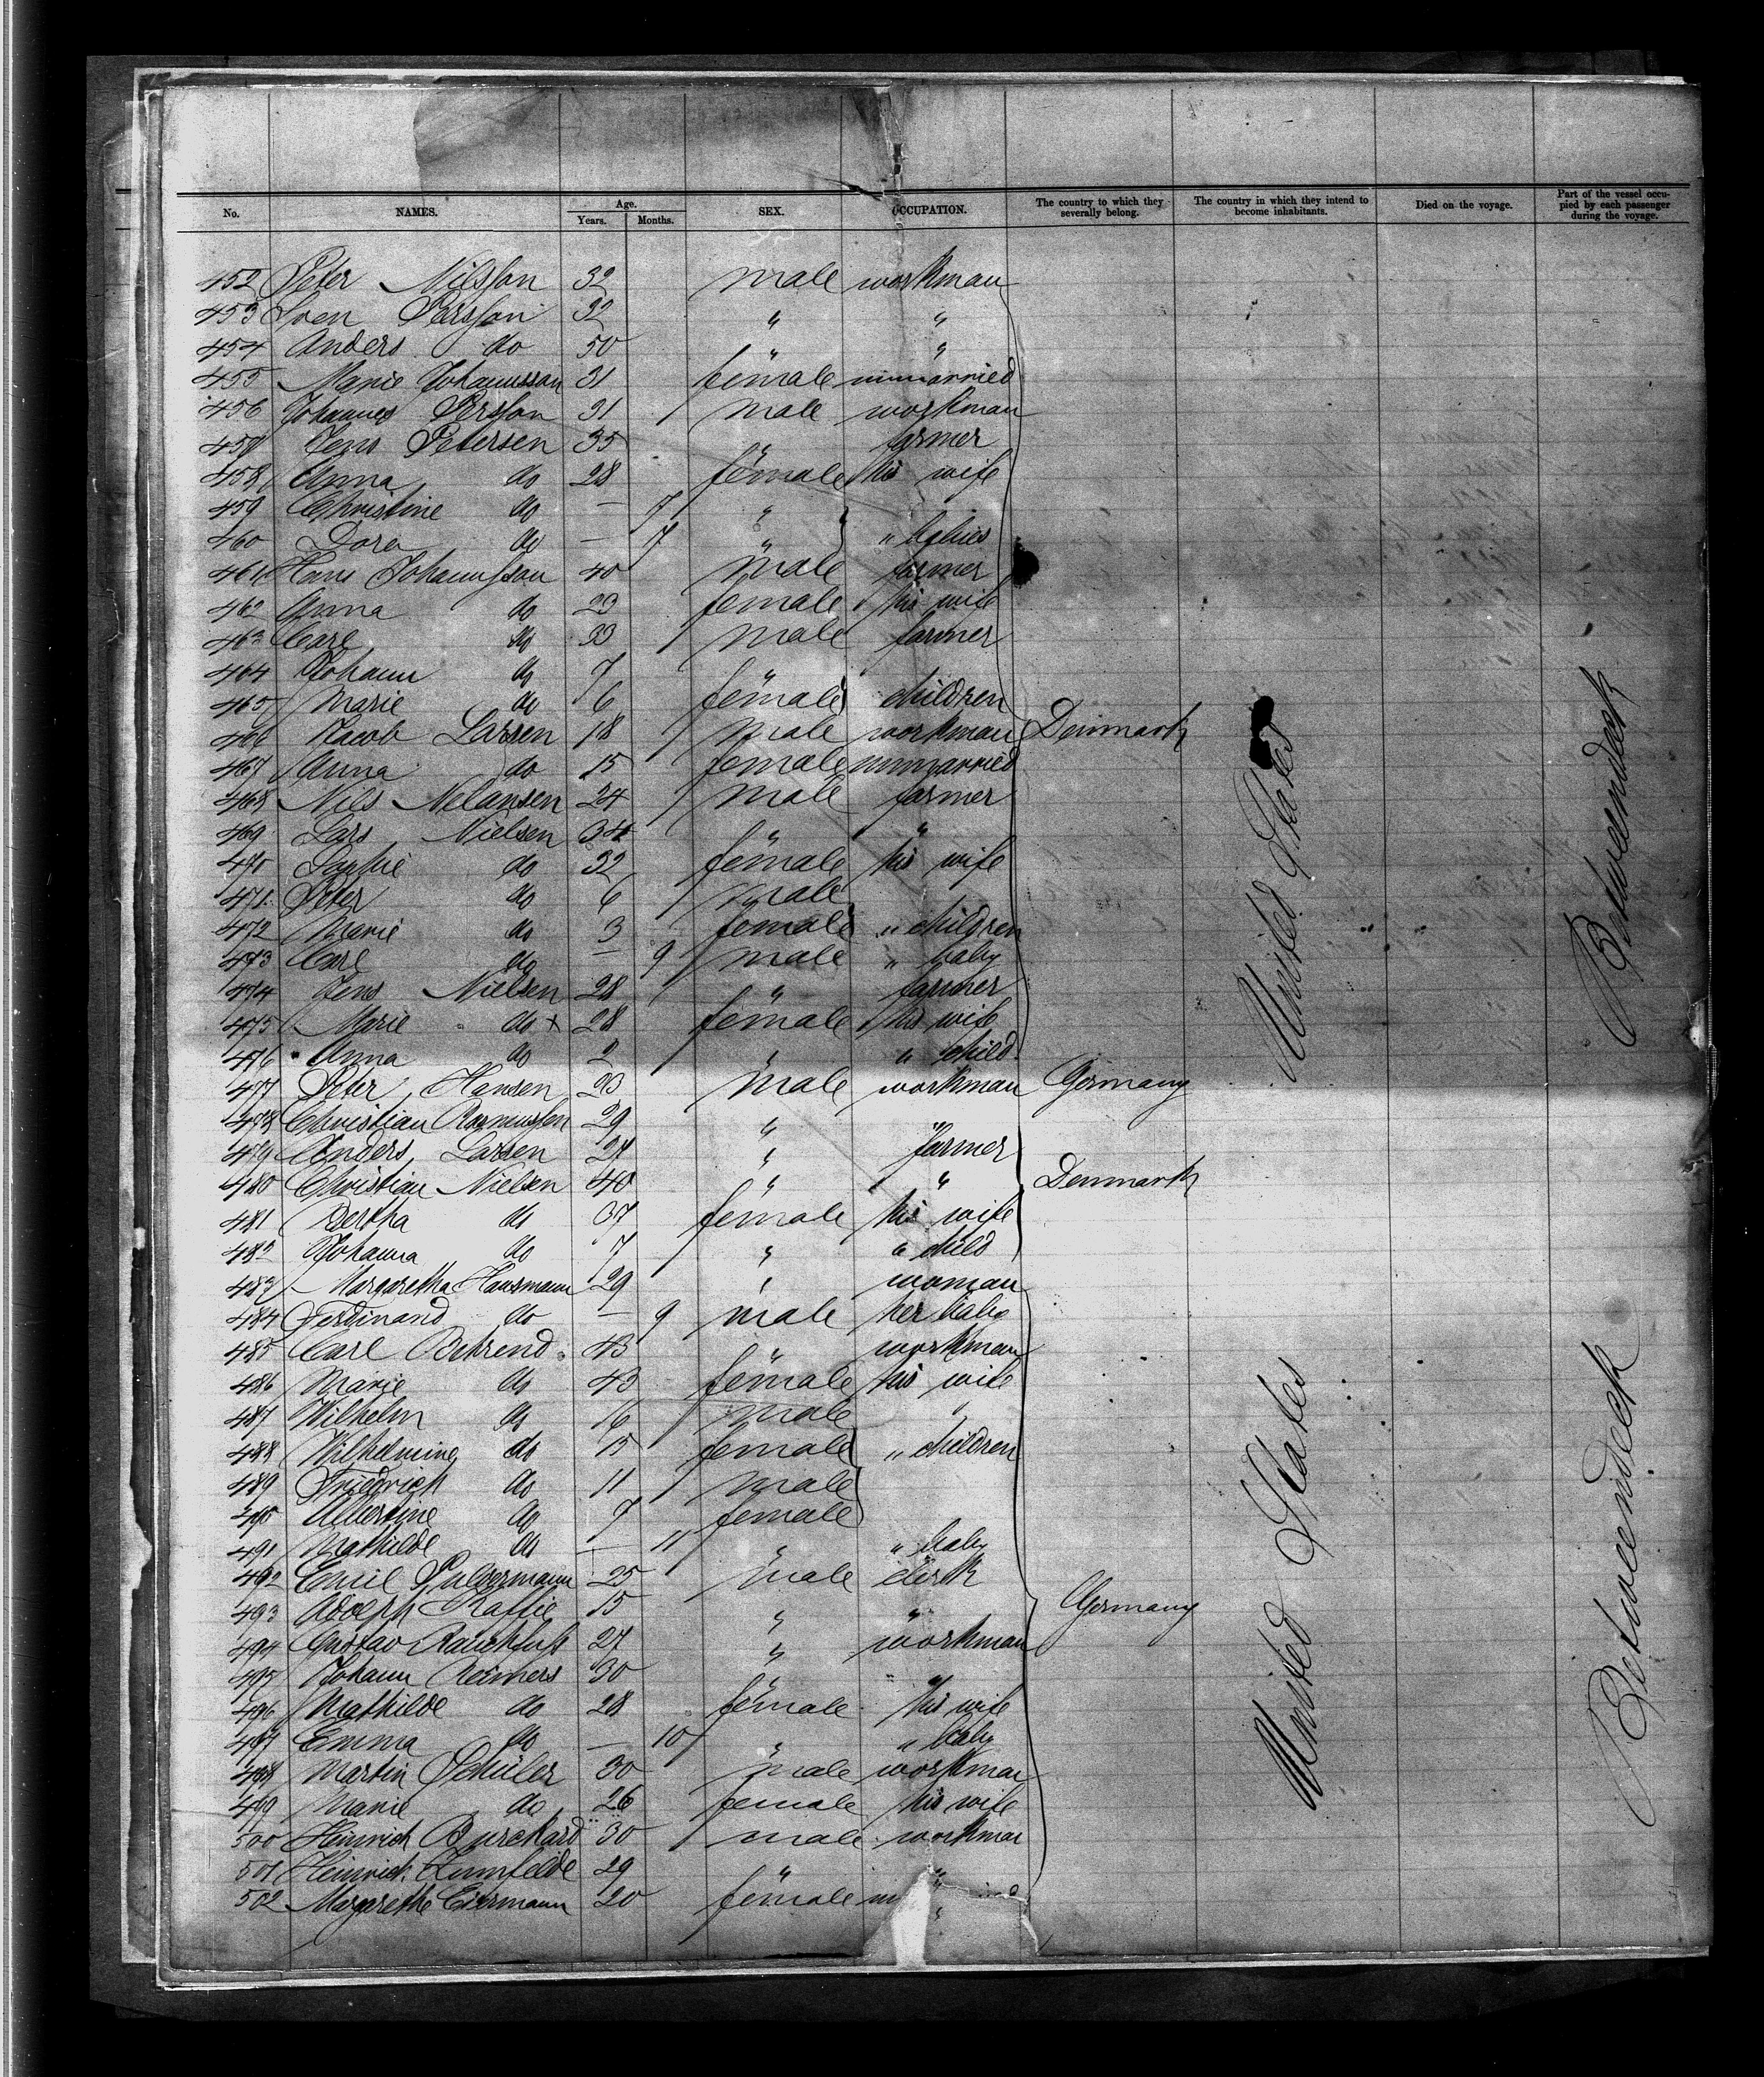 No. NAMES. Age. Years. Months. SEX. OCCUPATION. The country to which they severally belong. The country in which they intend to become inhabitants. Died on the voyage. Part of the vessel occupied by each passenger during the voyage.
452 Peter Nilsson 32 male workman
453 Sven Persson 32 " "
454 Anders do 50 " "
455 Marie Johannsson 31 female unmarried
456 Johannes Persson 31 male workman
457 Jens Petersen 35 " farmer
458 Anna do 28 female his wife
459 Christine do — 7 "
460 Dora do — 7 " " babies
461 Hans Johannsson 40 male farmer
462 Anna do 29 female his wife
463 Carl do 33 male farmer
464 Johann do 7 "
465 Marie do 6 female children
466 Jacob Larsen 18 male workman Denmark
467 Anna do 15 female unmarried
468 Nils Nelansen 24 male farmer
469 Lars Nielsen 34 " "
470 Sophie do 32 female his wife
471 Peter do 6 male
472 Marie do 3 female " children
473 Carl do — 9 male " baby
474 Jens Nielsen 28 " farmer
475 Marie do x 28 female his wife
476 Anna do 2 " " child
477 Peter Hansen 23 male workman Germany
478 Christian Rasmussen 29 " "
479 Anders Larsen 24 " farmer
480 Christian Nielsen 40 " " Denmark
481 Bertha do 37 female his wife
482 Johanna do 7 " " child
483 Margaretha Hausmann 29 " woman
484 Ferdinand do — 9 male her baby
485 Carl Behrend 43 " workman
486 Marie do 43 female his wife
487 Wilhelm do 16 male "
488 Wilhelmine do 15 female " children
489 Friedrich do 11 male
490 Albertine do 7 female
491 Mathilde do — 11 " " baby
492 Emil Pulvermann 25 male clerk
493 Adolph 15 " " Germany
494 Gustav Rauchfuss 27 " workman
495 Johann Reimers 30 " "
496 Mathilde do 28 female his wife
497 Emma do — 10 " " baby
498 Martin Schüler 30 male workman
499 Marie do 26 female his wife
500 Heinrich Burchard 30 male workman
501 Heinrich 29 " "
502 Margarethe Eiermann 20 female
United States
Betweendeck
United States
Betweendeck